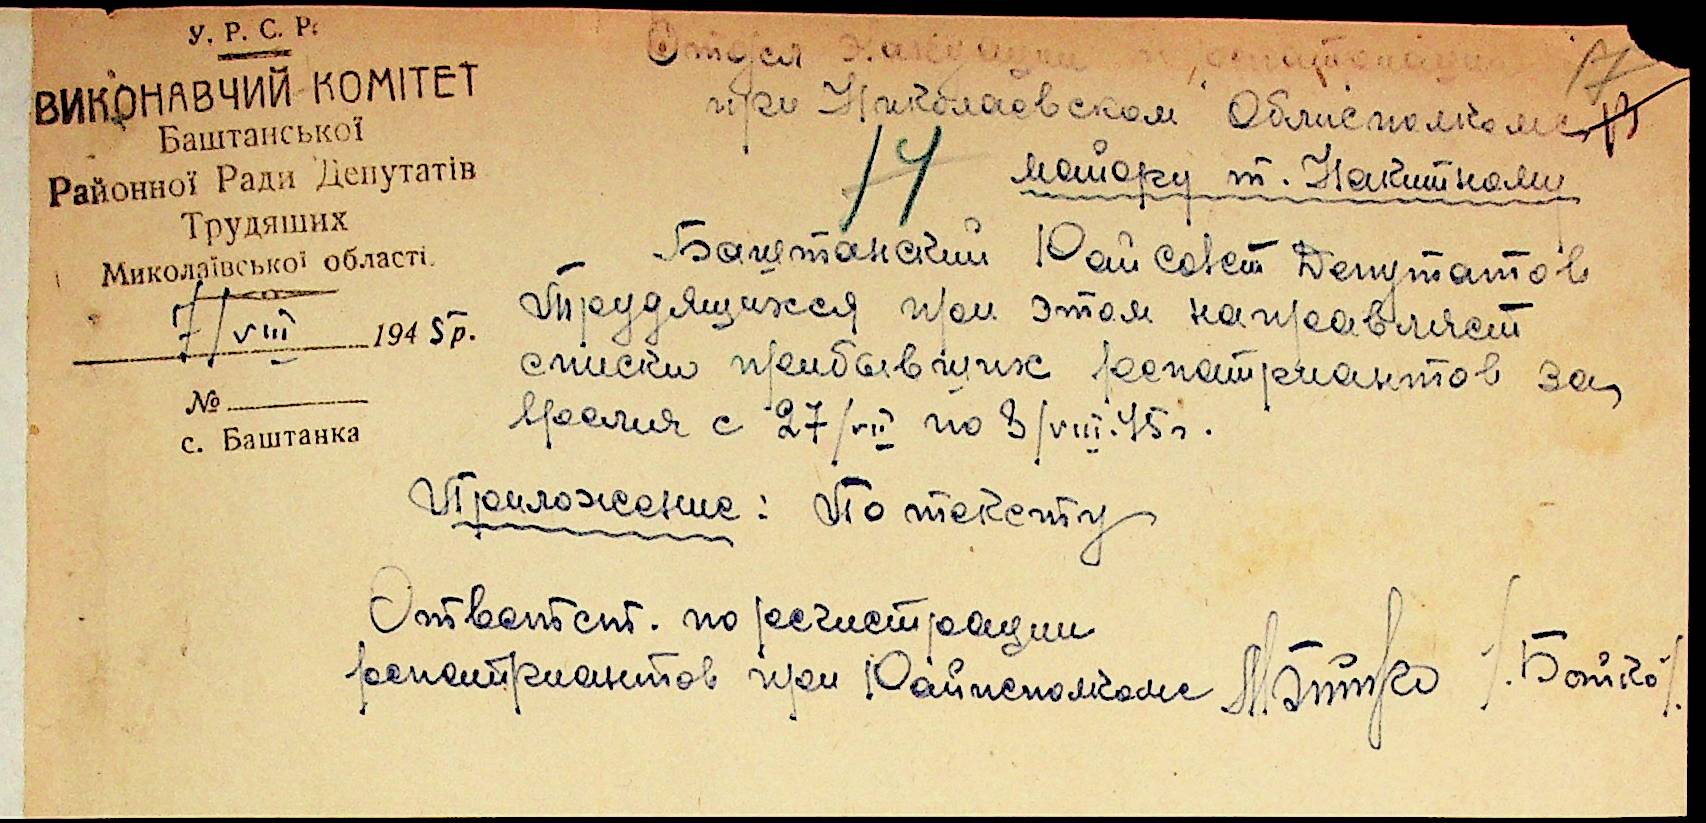 У. Р. С. Р.
ВИКОНАВЧИЙ КОМІТЕТ
Баштанської
Районної Ради Депутатів
Трудящих
Миколаївської області
7/VIII 1945 р.
№
с. Баштанка
Отдел эвакуации и репатриации
при Николаевском Облисполкоме
майору т. Накитному
14
Баштанский Райсовет Депутатов
Трудящихся при этом направляет
списки прибывших репатриантов за
время с 27/VII по 3/VIII.45 г.
Приложение: По тексту
Ответст. по регистрации
репатриантов при Райисполкоме /Бойко/.